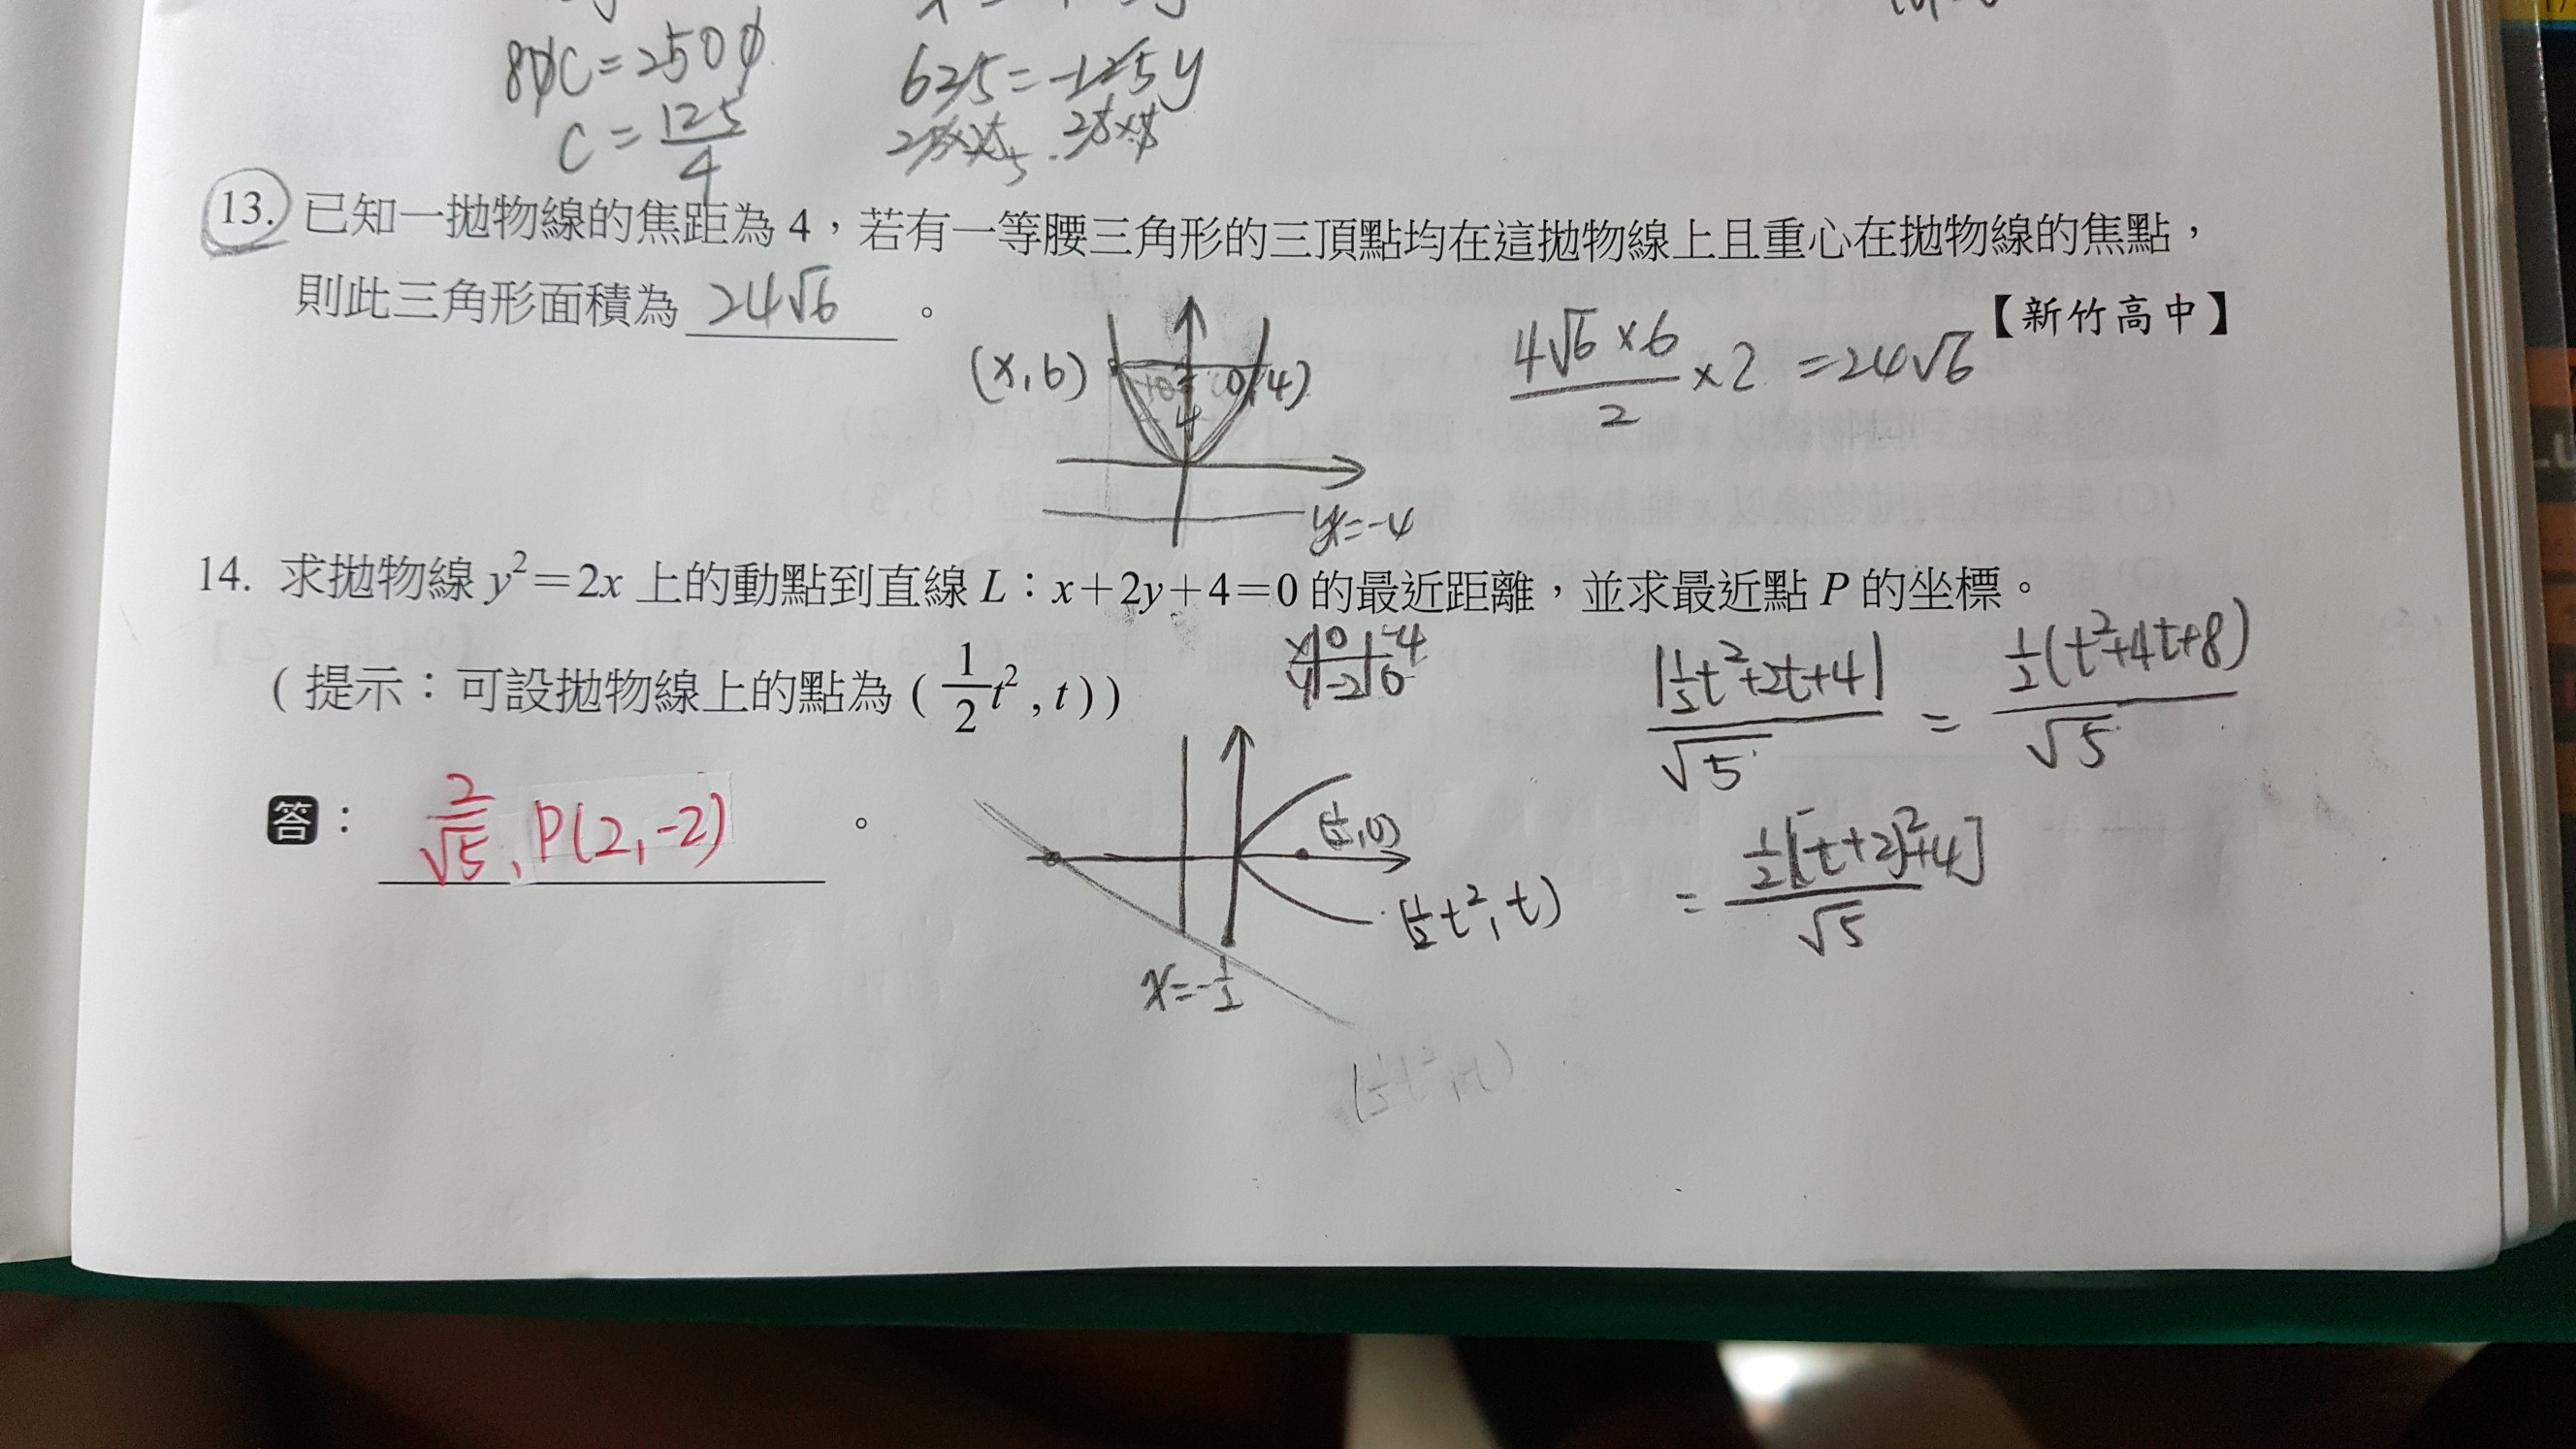 80C=2500
625=-125y
C=125/4
13. 已知一拋物線的焦距為 4，若有一等腰三角形的三頂點均在這拋物線上且重心在拋物線的焦點，
則此三角形面積為 24√6 。
【新竹高中】
(x,6)
4
4√6×6/2 ×2 =24√6
y=-4
14. 求拋物線 y²=2x 上的動點到直線 L：x+2y+4=0 的最近距離，並求最近點 P 的坐標。
(提示：可設拋物線上的點為 (1/2 t², t))
x|0|-4
y|-2|0
|1/2t²+2t+4|/√5 = 1/2(t²+4t+8)/√5
答： 2/√5, P(2,-2) 。
(1/2,0)
(1/2t²,t)
= 1/2[(t+2)²+4]/√5
x=-1/2
(1/2t²,t)